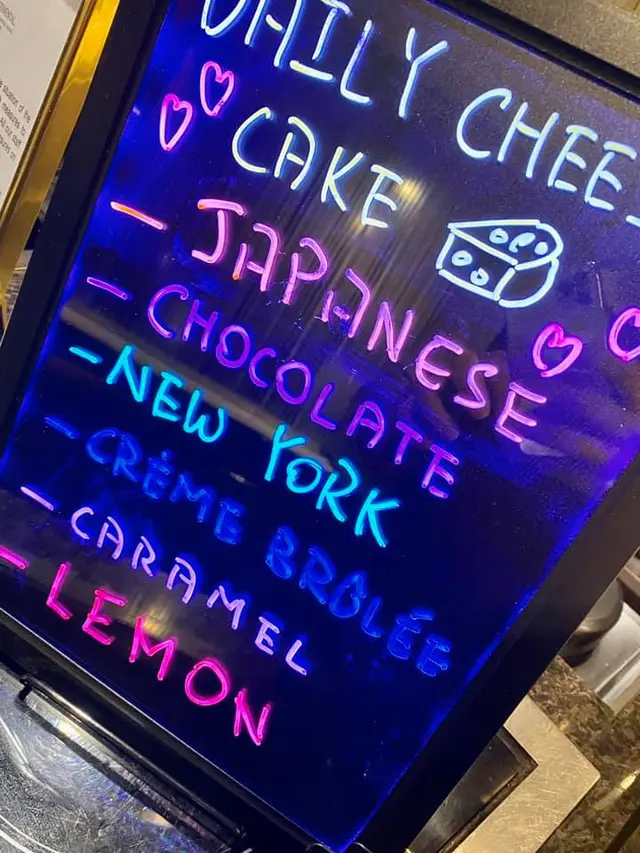 DAILY CHEE
CAKE
- JAPANESE
- CHOCOLATE
- NEW YORK
- CRÈME BRÛLÉE
- CARAMEL
- LEMON